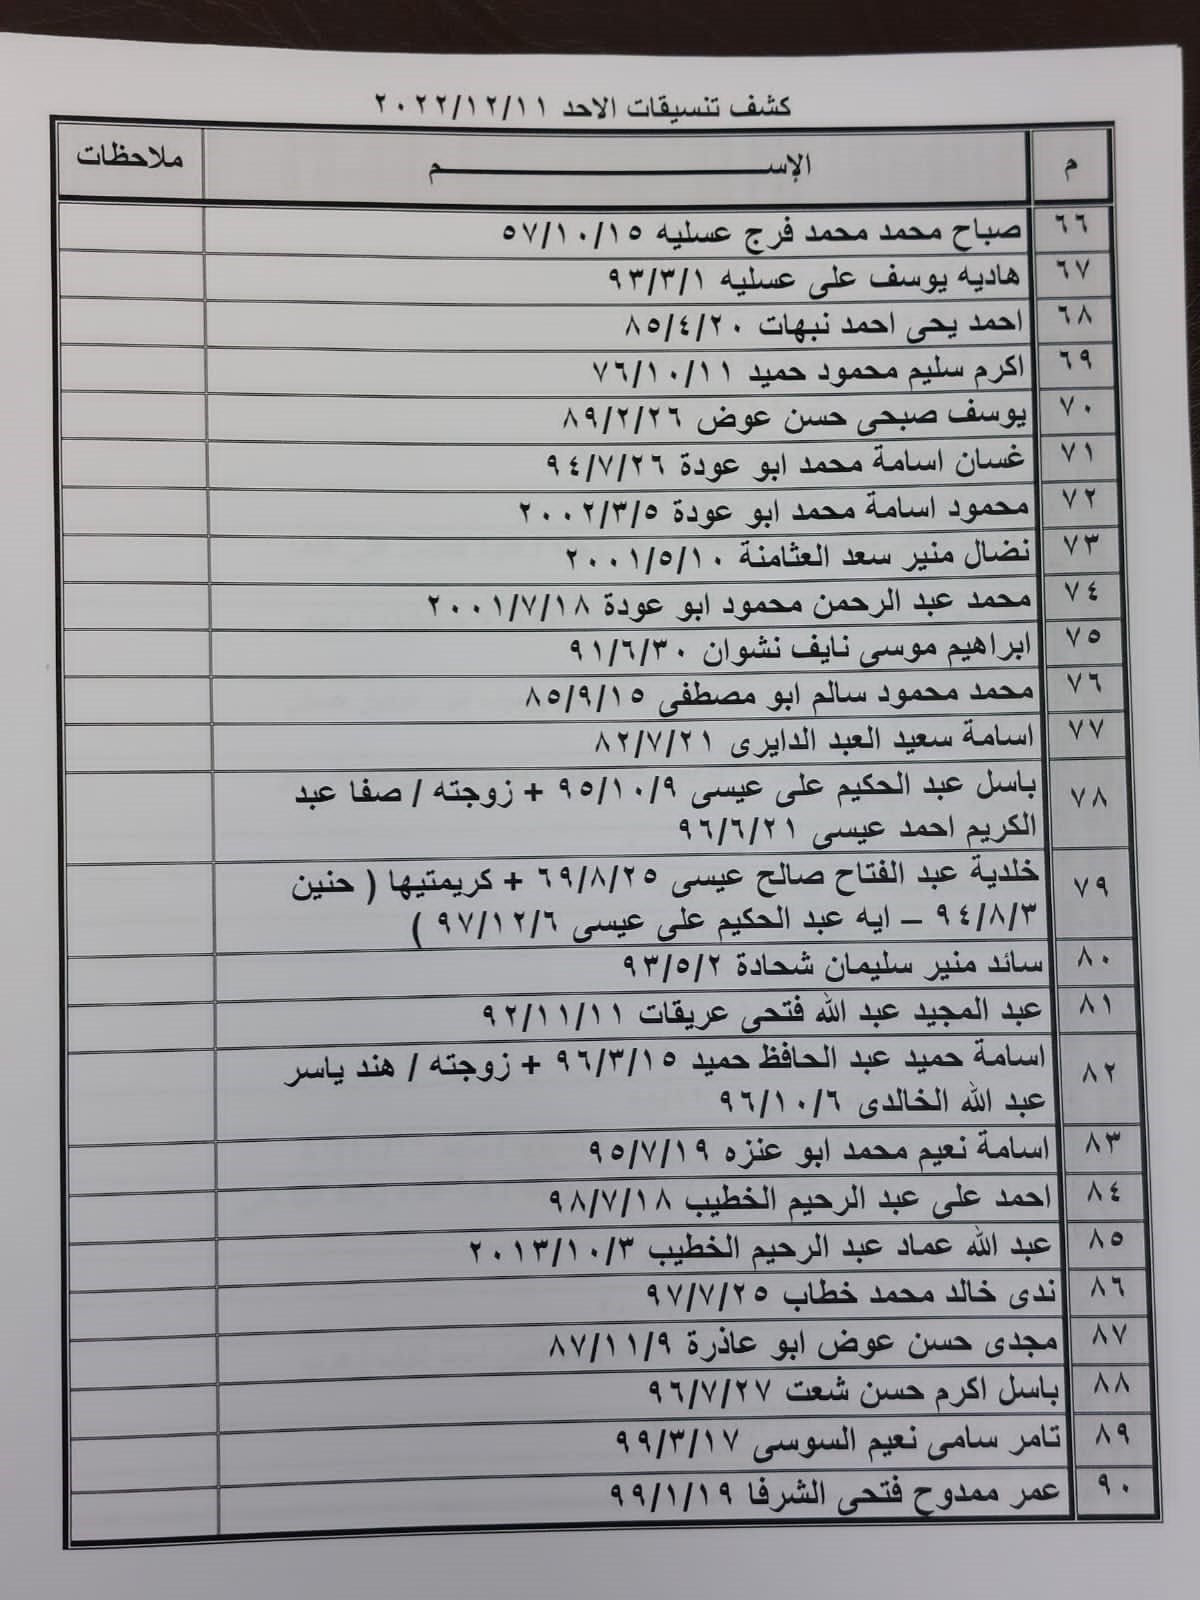 كشف تنسيقات الاحد ٢٠٢٢/١٢/١١
م الإســـم ملاحظات
٦٦ صباح محمد محمد فرج عسليه ٥٧/١٠/١٥
٦٧ هاديه يوسف على عسليه ٩٣/٣/١
٦٨ احمد يحى احمد نبهات ٨٥/٤/٢٠
٦٩ اكرم سليم محمود حميد ٧٦/١٠/١١
٧٠ يوسف صبحى حسن عوض ٨٩/٢/٢٦
٧١ غسان اسامة محمد ابو عودة ٩٤/٧/٢٦
٧٢ محمود اسامة محمد ابو عودة ٢٠٠٢/٣/٥
٧٣ نضال منير سعد العثامنة ٢٠٠١/٥/١٠
٧٤ محمد عبد الرحمن محمود ابو عودة ٢٠٠١/٧/١٨
٧٥ ابراهيم موسى نايف نشوان ٩١/٦/٣٠
٧٦ محمد محمود سالم ابو مصطفى ٨٥/٩/١٥
٧٧ اسامة سعيد العبد الدايرى ٨٢/٧/٢١
٧٨ باسل عبد الحكيم على عيسى ٩٥/١٠/٩ + زوجته / صفا عبد
الكريم احمد عيسى ٩٦/٦/٢١
٧٩ خلدية عبد الفتاح صالح عيسى ٦٩/٨/٢٥ + كريمتيها ( حنين
٩٤/٨/٣ – ايه عبد الحكيم على عيسى ٩٧/١٢/٦ )
٨٠ سائد منير سليمان شحادة ٩٣/٥/٢
٨١ عبد المجيد عبد الله فتحى عريقات ٩٢/١١/١١
٨٢ اسامة حميد عبد الحافظ حميد ٩٦/٣/١٥ + زوجته / هند ياسر
عبد الله الخالدى ٩٦/١٠/٦
٨٣ اسامة نعيم محمد ابو عنزه ٩٥/٧/١٩
٨٤ احمد على عبد الرحيم الخطيب ٩٨/٧/١٨
٨٥ عبد الله عماد عبد الرحيم الخطيب ٢٠١٣/١٠/٣
٨٦ ندى خالد محمد خطاب ٩٧/٧/٢٥
٨٧ مجدى حسن عوض ابو عاذرة ٨٧/١١/٩
٨٨ باسل اكرم حسن شعت ٩٦/٧/٢٧
٨٩ تامر سامى نعيم السوسى ٩٩/٣/١٧
٩٠ عمر ممدوح فتحى الشرفا ٩٩/١/١٩